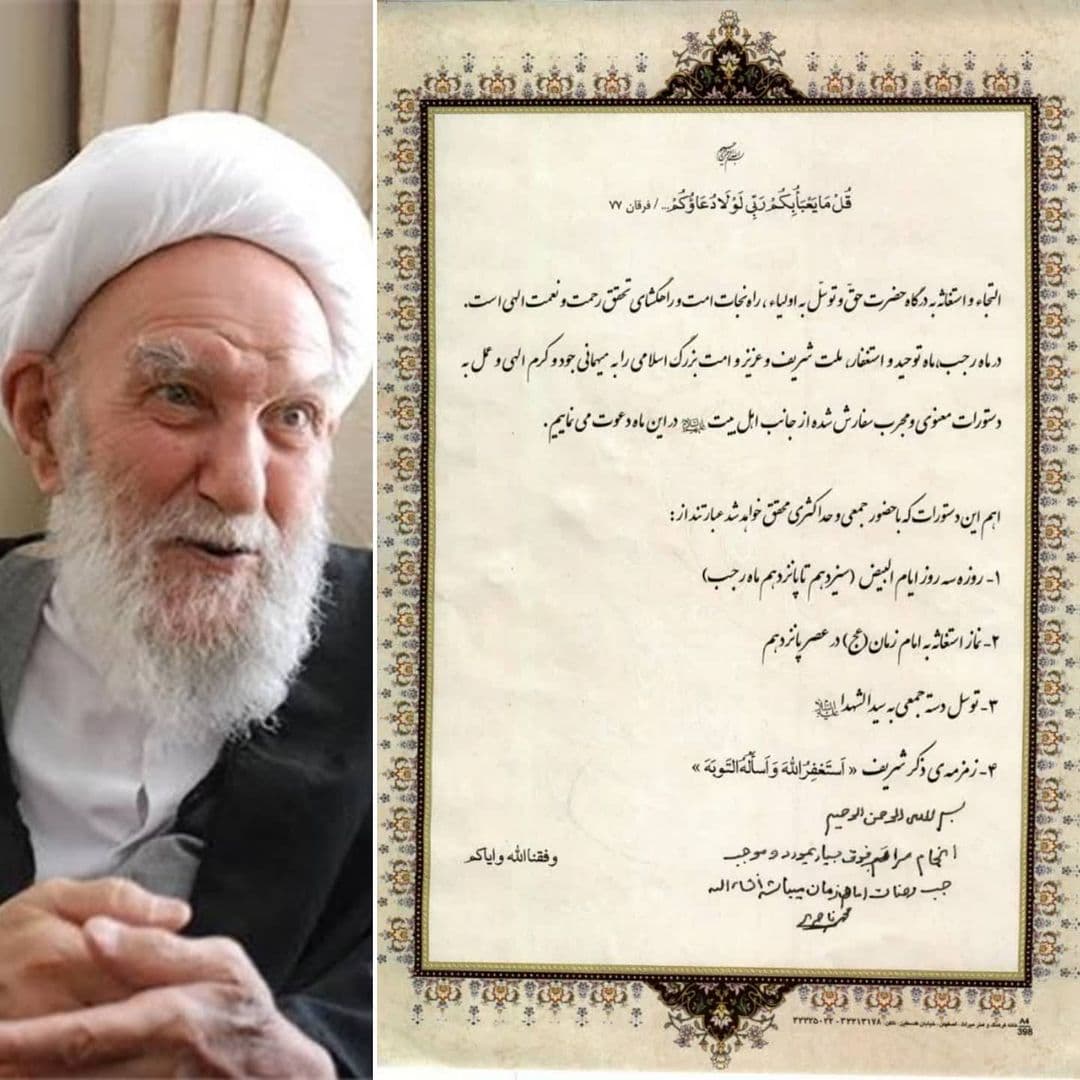 بسم الله الرحمن الرحیم
قُلْ مَا يَعْبَأُ بِكُمْ رَبِّي لَوْلَا دُعَاؤُكُمْ... / فرقان ۷۷
التجاء و استغاثه به درگاه حضرت حقّ و توسّل به اولیاء، راه نجات امت و راهگشای تحقق رحمت و نعمت الهی است.
در ماه رجب، ماه توحید و استغفار، ملت شریف و عزیز و امت بزرگ اسلامی را به میهمانی جود و کرم الهی و عمل به
دستورات معنوی و مجرب سفارش شده از جانب اهل بیت علیهم‌السلام در این ماه دعوت می نماییم.
اهم این دستورات که با حضور جمعی و حداکثری محقق خواهد شد عبارتند از:
۱- روزه سه روز ایام البیض (سیزدهم تا پانزدهم ماه رجب)
۲- نماز استغاثه به امام زمان (عج) در عصر پانزدهم
۳- توسل دسته جمعی به سیدالشهدا علیه‌السلام
۴- زمزمه‌ی ذکر شریف « اَستَغفِرُ اللهَ وَ اَسأَلُهُ التَّوبَةَ »
بسم الله الرحمن الرحیم
انجام مراسم فوق بسیار بمورد و موجب
جلب عنایات امام زمان میباشد انشاءالله
محمد ناصری
وفقنا الله و ایاکم
خانه فرهنگ و هنر میراث - اصفهان - خیابان فلسطین - تلفن: ۳۲۲۱۳۱۷۸ - ۳۲۲۲۵۰۲۲
A4
398